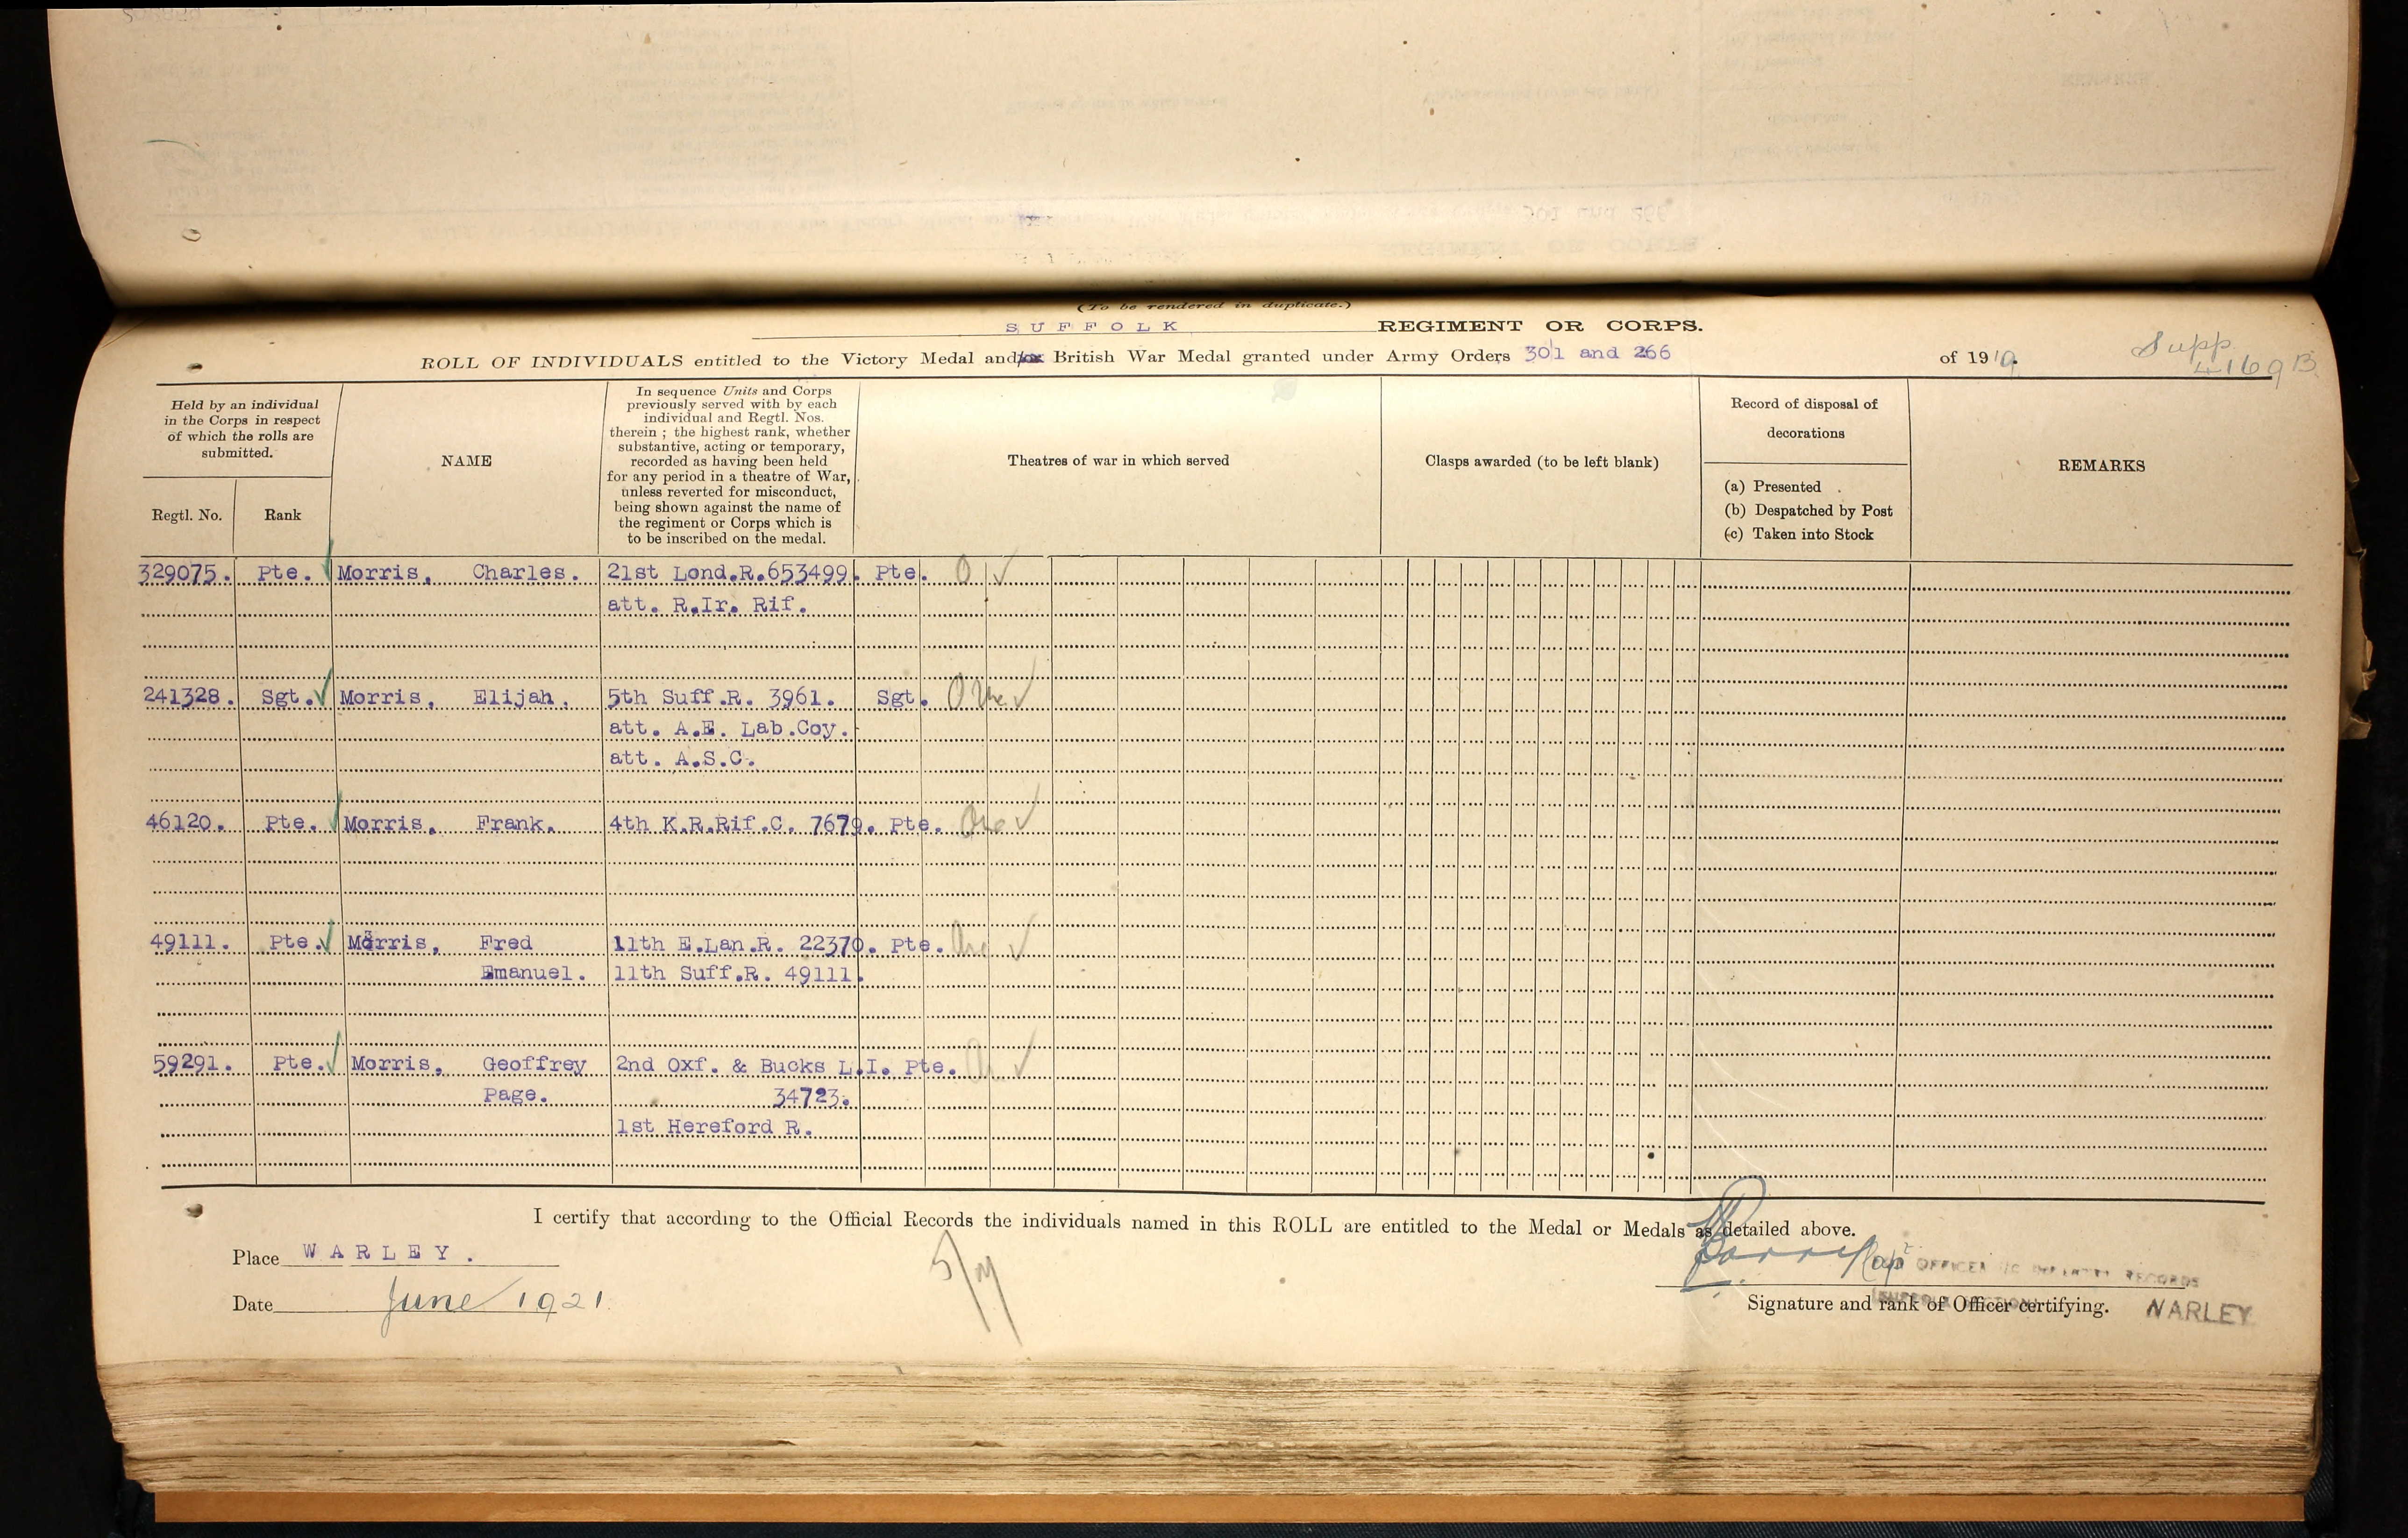 (To be rendered in duplicate.)
SUFFOLK REGIMENT OR CORPS.
Supp
4169B
ROLL OF INDIVIDUALS entitled to the Victory Medal and/or British War Medal granted under Army Orders 301 and 266 of 1919.
Held by an individual
in the Corps in respect
of which the rolls are
submitted.
Regtl. No.
Rank
NAME
In sequence Units and Corps
previously served with by each
individual and Regtl. Nos.
therein ; the highest rank, whether
substantive, acting or temporary,
recorded as having been held
for any period in a theatre of War,
unless reverted for misconduct,
being shown against the name of
the regiment or Corps which is
to be inscribed on the medal.
Theatres of war in which served
Clasps awarded (to be left blank)
Record of disposal of
decorations
(a) Presented
(b) Despatched by Post
(c) Taken into Stock
REMARKS
329075. Pte. Morris, Charles. 21st Lond.R.653499. Pte.
att. R.Ir. Rif.
241328. Sgt. Morris, Elijah. 5th Suff.R. 3961. Sgt.
att. A.E. Lab.Coy.
att. A.S.C.
46120. Pte. Morris, Frank. 4th K.R.Rif.C. 7679. Pte.
49111. Pte. Morris, Fred 11th E.Lan.R. 22370. Pte.
Emanuel. 11th Suff.R. 49111.
59291. Pte. Morris, Geoffrey 2nd Oxf. & Bucks L.I. Pte.
Page. 34723.
1st Hereford R.
I certify that according to the Official Records the individuals named in this ROLL are entitled to the Medal or Medals as detailed above.
Place WARLEY.
Date June 1921
Capt
OFFICER I/C INFANTRY RECORDS
(SUFFOLK SECTION)
Signature and rank of Officer certifying.
WARLEY